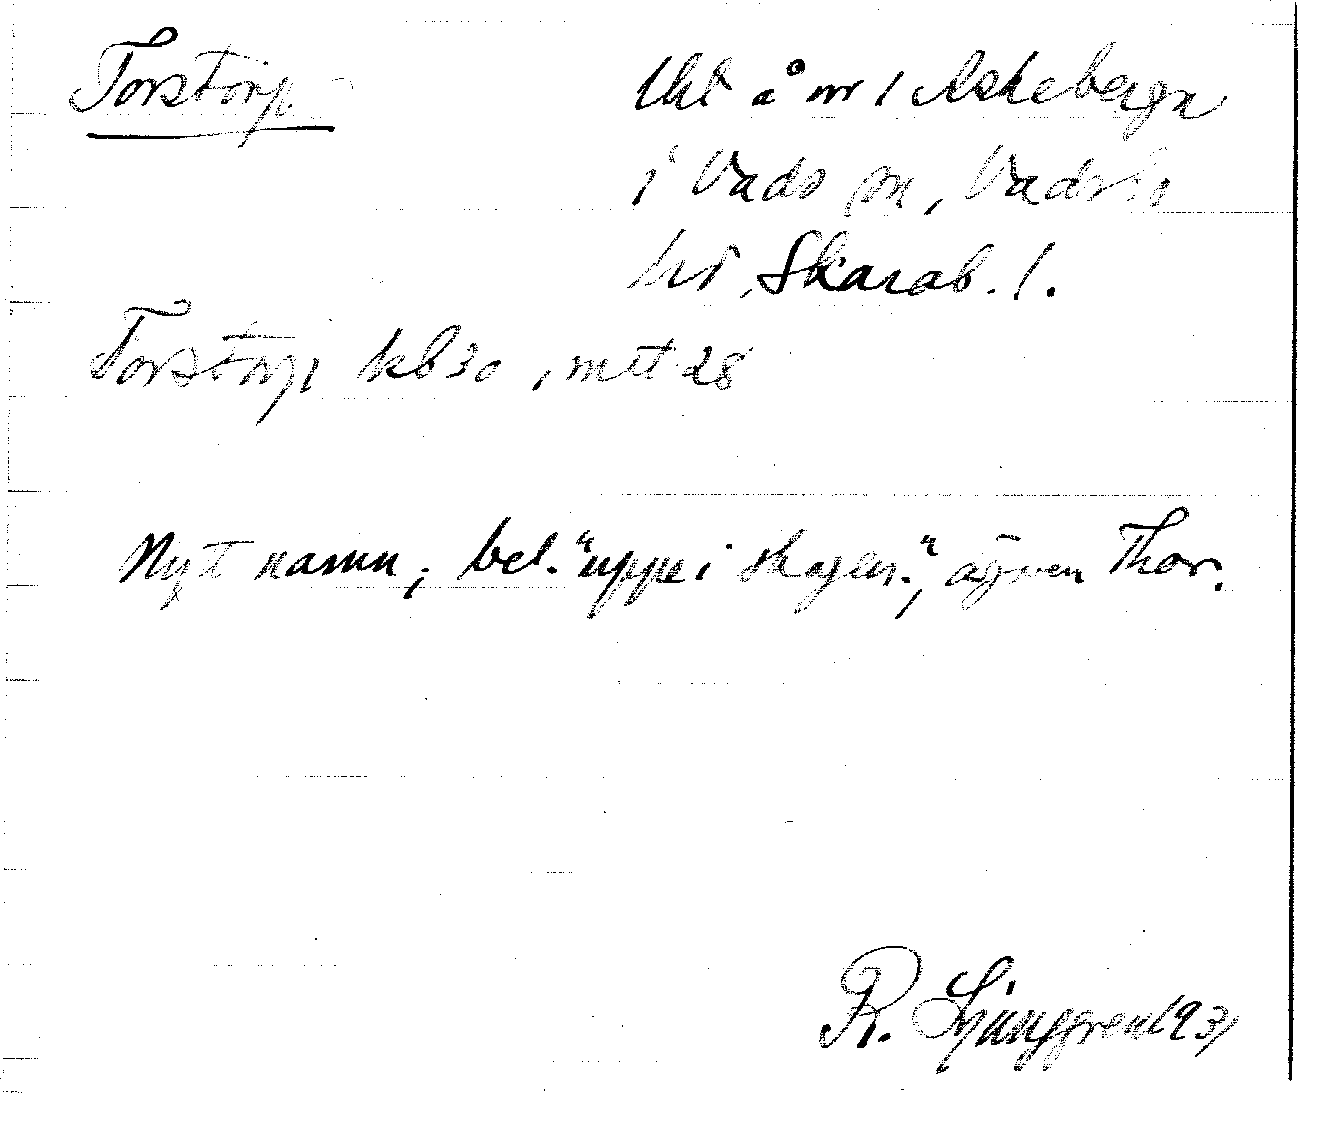 Torstorp
Lht å nr 1 Askeberga
i Vads sn, Vadsbo
hd, Skarab. l.
Torstorp kb 30, mtt 28
Nytt namn; bel. "uppe i skogen.", ägaren Thor.
R. Ljunggren 1931